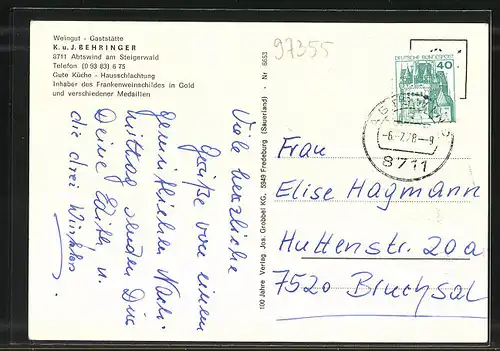 Weingut - Gaststätte
K. u. J. BEHRINGER
8711 Abtswind am Steigerwald
Telefon (0 93 83) 6 75
Gute Küche - Hausschlachtung
Inhaber des Frankenweinschildes in Gold
und verschiedener Medaillen
97355
DEUTSCHE BUNDESPOST
40
-6.-7.78--9
8711
100 Jahre Verlag Jos. Grobbel KG., 5949 Fredeburg (Sauerland) - Nr 6653
Viele herzliche
Grüße von einem
gemütlichen Nach-
mittag senden Dir
Deine Edith u.
die drei
Frau
Elise Hagmann
Huttenstr. 20a
7520 Bruchsal